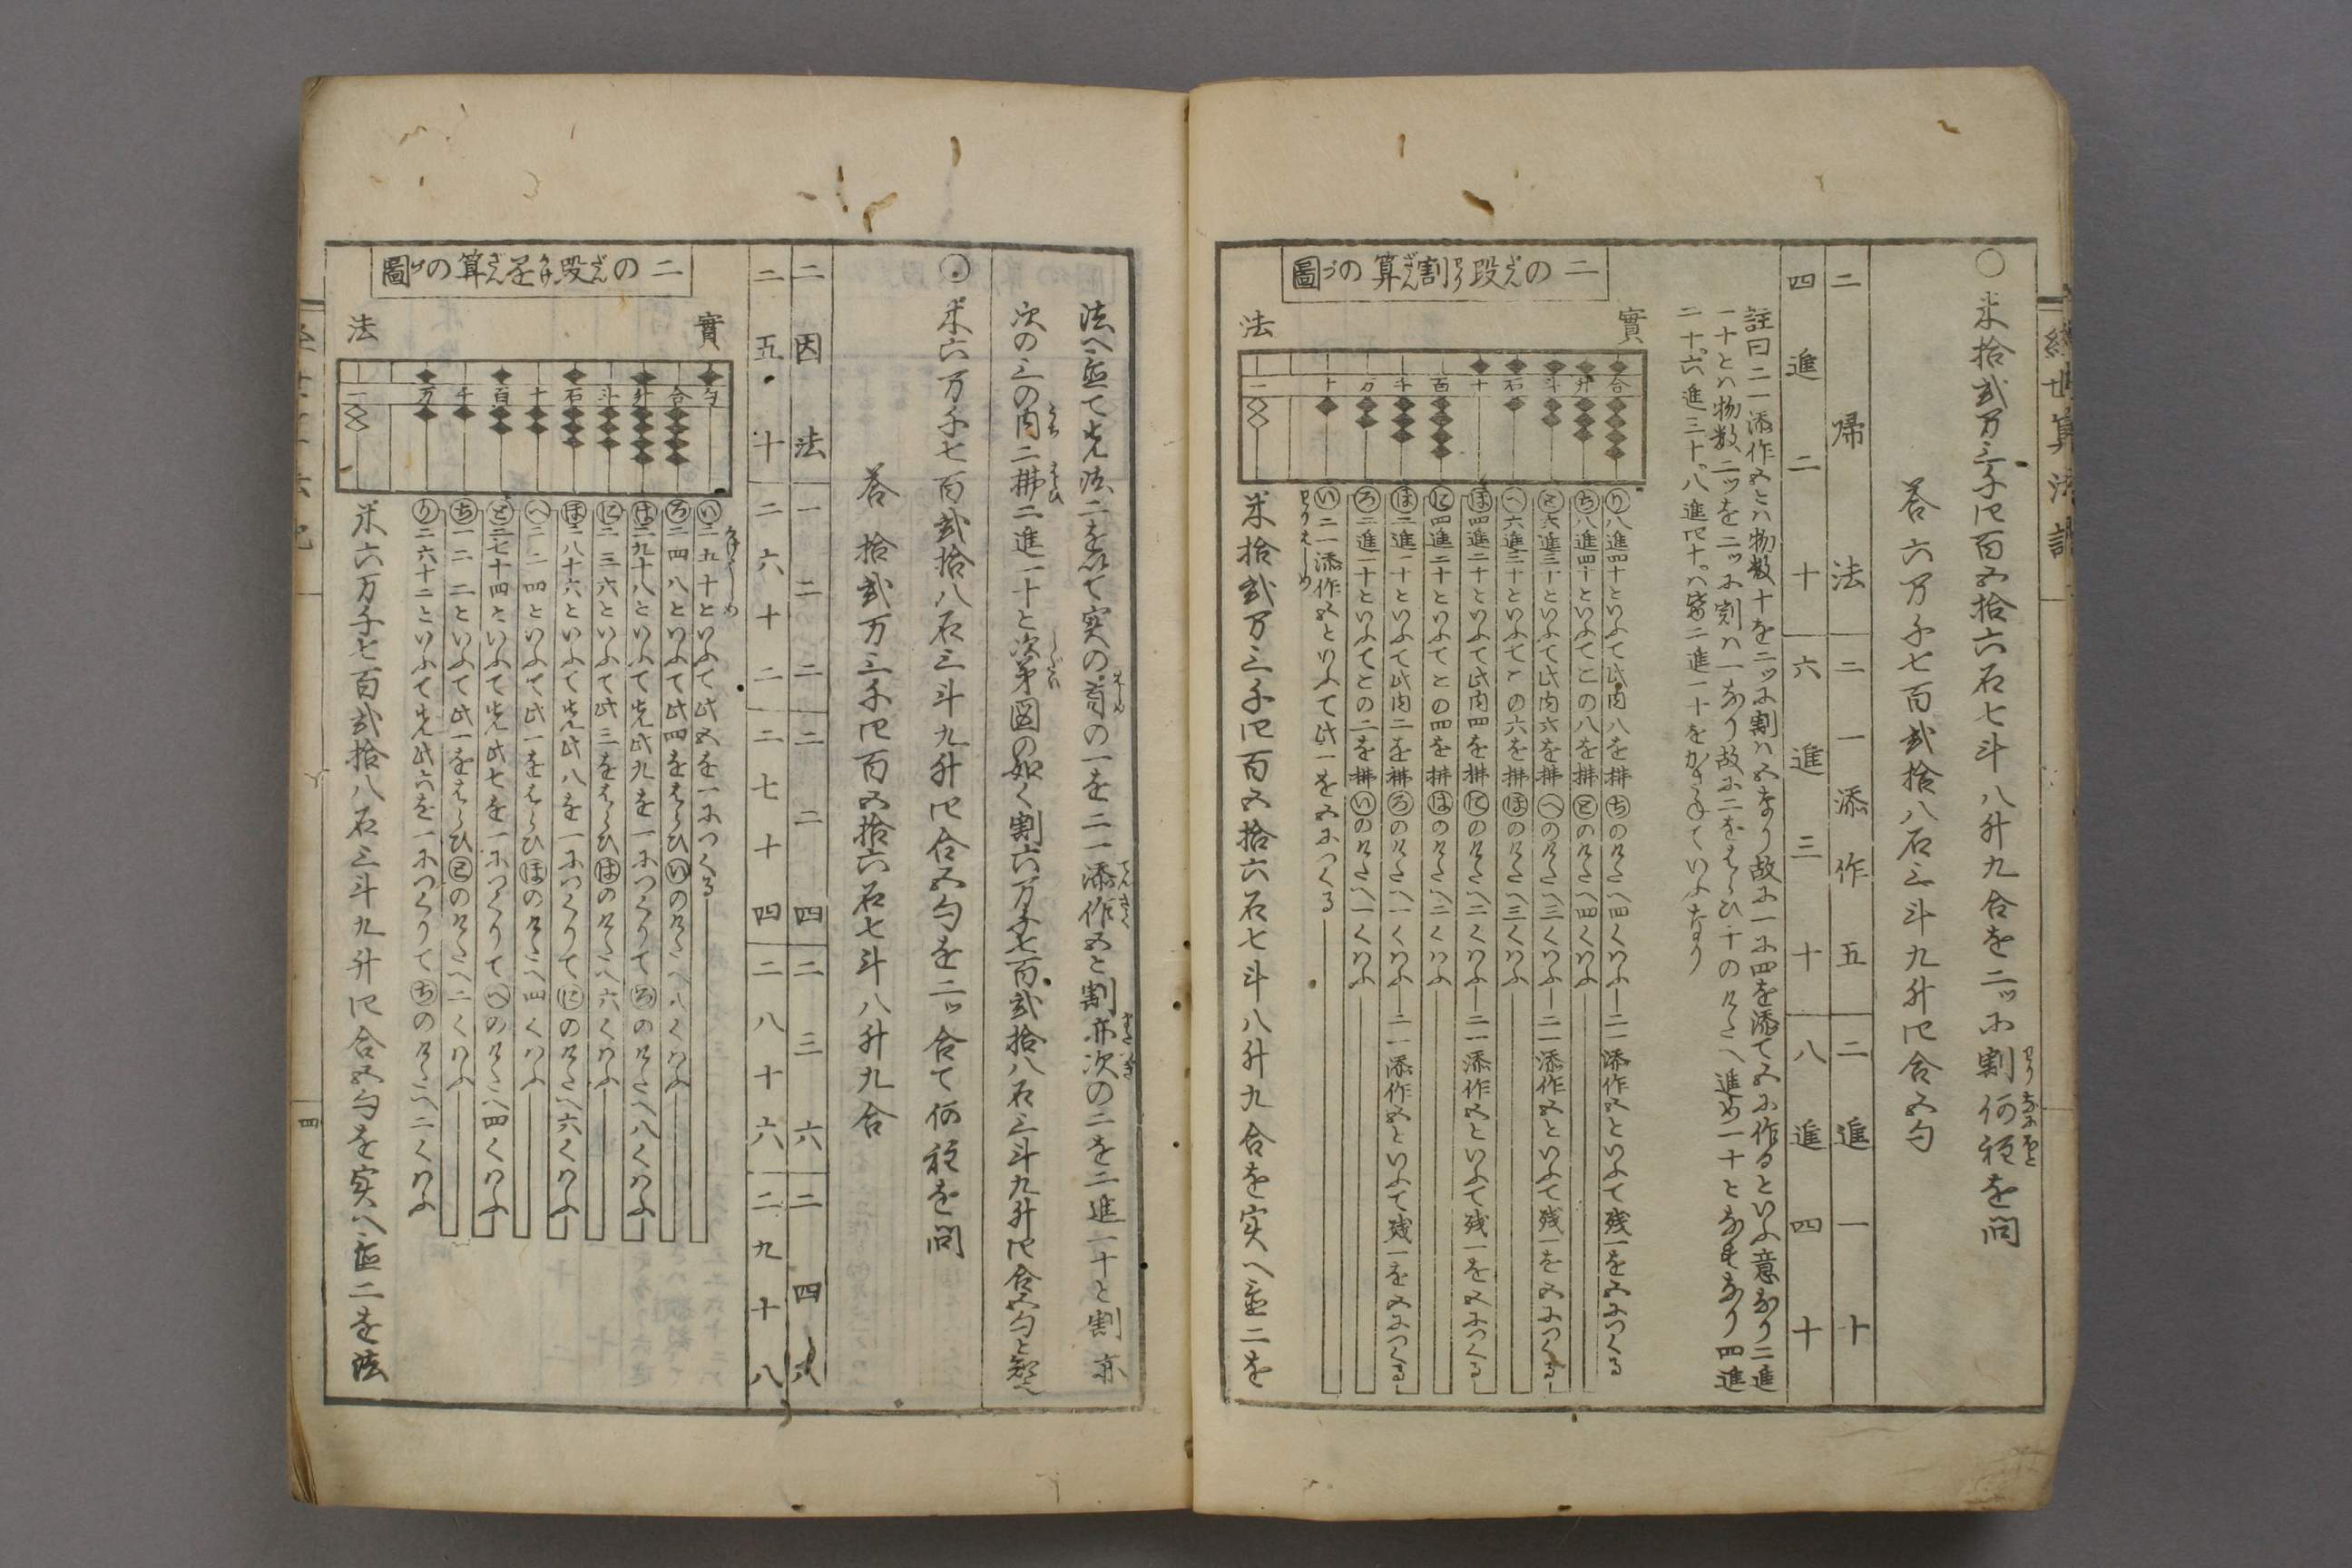 ○米拾弐万三千四百五拾六石七斗八升九合を二ツに割何程を問
答六万千七百弐拾八石三斗九升四合五勺
二帰法 二一添作五 二進一十
四進二十 六進三十 八進四十
註曰二一添作五とハ物数十を二ツに割ハ五なり故に一に四を添て五に作るといふ意なり二進
一十とハ物数二ツを二ツに割ハ一なり故に二をはらひ十のけたへ進め一十となすなり四進
二十六進三十八進四十ハ皆二進一十をかさねていふなり
二の段割算の圖
實
法
合 升 斗 石 十 百 千 万 十 一
り 八進四十といふて此内八を拂ちのけたへ四くハふ 二一添作五といふて残一を五につくる
ち 八進四十といふてこの八を拂とのけたへ四くハふ
と 六進三十といふて此内六を拂へのけたへ三くハふ 二一添作五といふて残一を五につくる
へ 六進三十といふてこの六を拂ほのけたへ三くハふ
ほ 四進二十といふて此内四を拂にのけたへ二くハふ 二一添作五といふて残一を五につくる
に 四進二十といふてこの四を拂はのけたへ二くハふ
は 二進一十といふて此内二を拂ろのけたへ一くハふ 二一添作五といふて残一を五につくる
ろ 二進一十といふてこの二を拂いのけたへ一くハふ
い 二一添作五といふて此一を五につくる
米拾弐万三千四百五拾六石七斗八升九合を実へ置二を
法へ置て先法二を以て実の首の一を二一添作五と割亦次の二を二進一十と割亦
次の三の内二拂二進一十と次第図の如く割六万千七百弐拾八石三斗九升四合五勺と知へし
○米六万千七百弐拾八石三斗九升四合五勺を二ツ合て何程を問
答拾弐万三千四百五拾六石七斗八升九合
二因法 一二二 二二四 二三六 二四八
二五十 二六十二 二七十四 二八十六 二九十八
二の段掛算の圖
實
法
勺 合 升 斗 石 十 百 千 万 一
い 二五十といふて此五を一につくる
ろ 二四八といふて此四をはらひいのけたへ八くハふ
は 二九十八といふて先此九を一につくりてろのけたへ八くハふ
に 二三六といふて此三をはらひはのけたへ六くハふ
ほ 二八十六といふて先此八を一につくりてにのけたへ六くハふ
へ 二二四といふて此二をはらひほのけたへ四くハふ
と 二七十四といふて先此七を一につくりてへのけたへ四くハふ
ち 一二二といふて此一をはらひとのけたへ二くハふ
り 二六十二といふて先此六を一につくりてちのけたへ二くハふ
米六万千七百弐拾八石三斗九升四合五勺を実へ置二を法
四